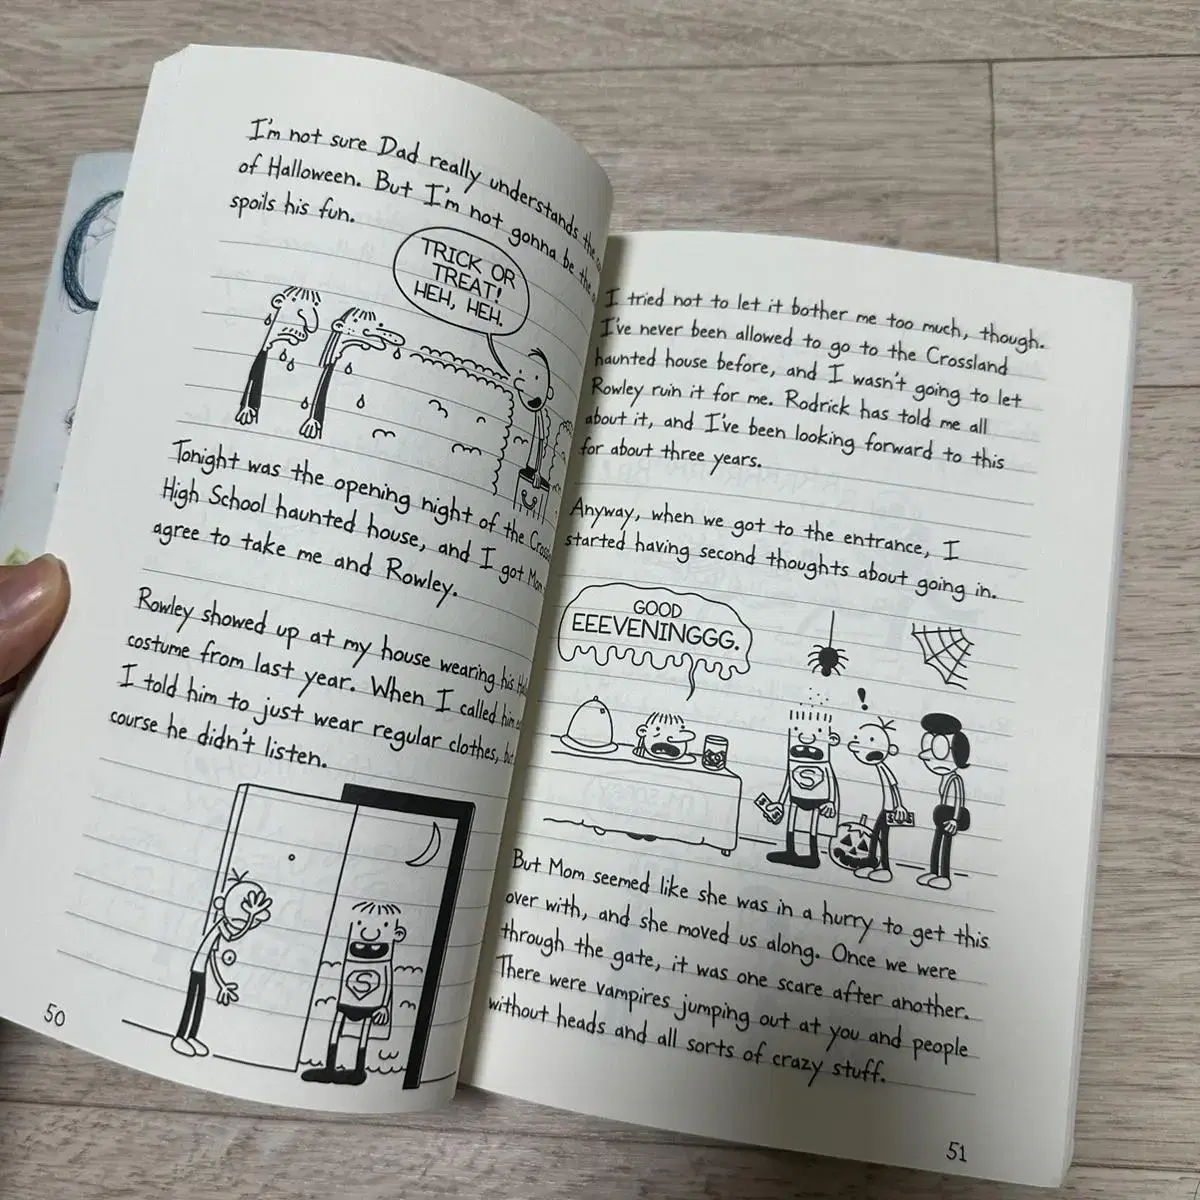 I'm not sure Dad really understands the
of Halloween. But I'm not gonna be the
spoils his fun.
TRICK OR
TREAT!
HEH, HEH.
Tonight was the opening night of the
High School haunted house, and I got Mom
agree to take me and Rowley.
Rowley showed up at my house wearing his
costume from last year. When I called him
I told him to just wear regular clothes, but
course he didn't listen.
S
50
I tried not to let it bother me too much, though.
I've never been allowed to go to the Crossland
haunted house before, and I wasn't going to let
Rowley ruin it for me. Rodrick has told me all
about it, and I've been looking forward to this
for about three years.
Anyway, when we got to the entrance, I
started having second thoughts about going in.
GOOD
EEEVENINGGG.
!
S
But Mom seemed like she was in a hurry to get this
over with, and she moved us along. Once we were
through the gate, it was one scare after another.
There were vampires jumping out at you and people
without heads and all sorts of crazy stuff.
51